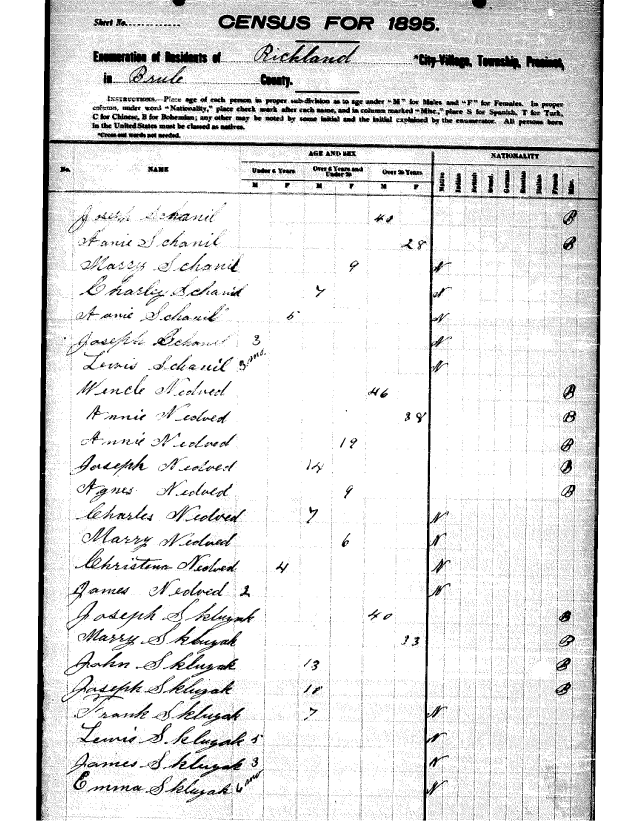 Sheet No.
CENSUS FOR 1895.
Enumeration of Residents of Richland *City-Village, Township, Precinct,
in Brule County.
INSTRUCTIONS.—Place age of each person in proper sub-division as to age under "M" for Males and "F" for Females. In proper
column, under word "Nationality," place check mark after each name, and in column marked "Misc." place S for Spanish, T for Turk,
C for Chinese, B for Bohemian; any other may be noted by some initial and the initial explained by the enumerator. All persons born
in the United States must be classed as natives.
*Cross out words not needed.
AGE AND SEX NATIONALITY
No. NAME Under 6 Years Over 6 Years and Under 20 Over 20 Years
M F M F M F
Joseph Schanil 40 B
Annie Schanil 28 B
Marry Schanil 9 N
Charley Schanil 7 N
Annie Schanil 5 N
Joseph Schanil 3 N
Lewis Schanil 3 mo. N
Wincle Nedved 46 B
Annie Nedved 38 B
Annie Nedved 19 B
Joseph Nedved 14 B
Agnes Nedved 9 B
Charles Nedved 7 N
Marry Nedved 6 N
Christena Nedved 4 N
James Nedved 2 N
Joseph Skluzak 40 B
Marry Skluzak 33 B
John Skluzak 13 B
Joseph Skluzak B
Frank Skluzak 7 N
Lewis Skluzak 5 N
James Skluzak 3 N
Emma Skluzak 6 mo N